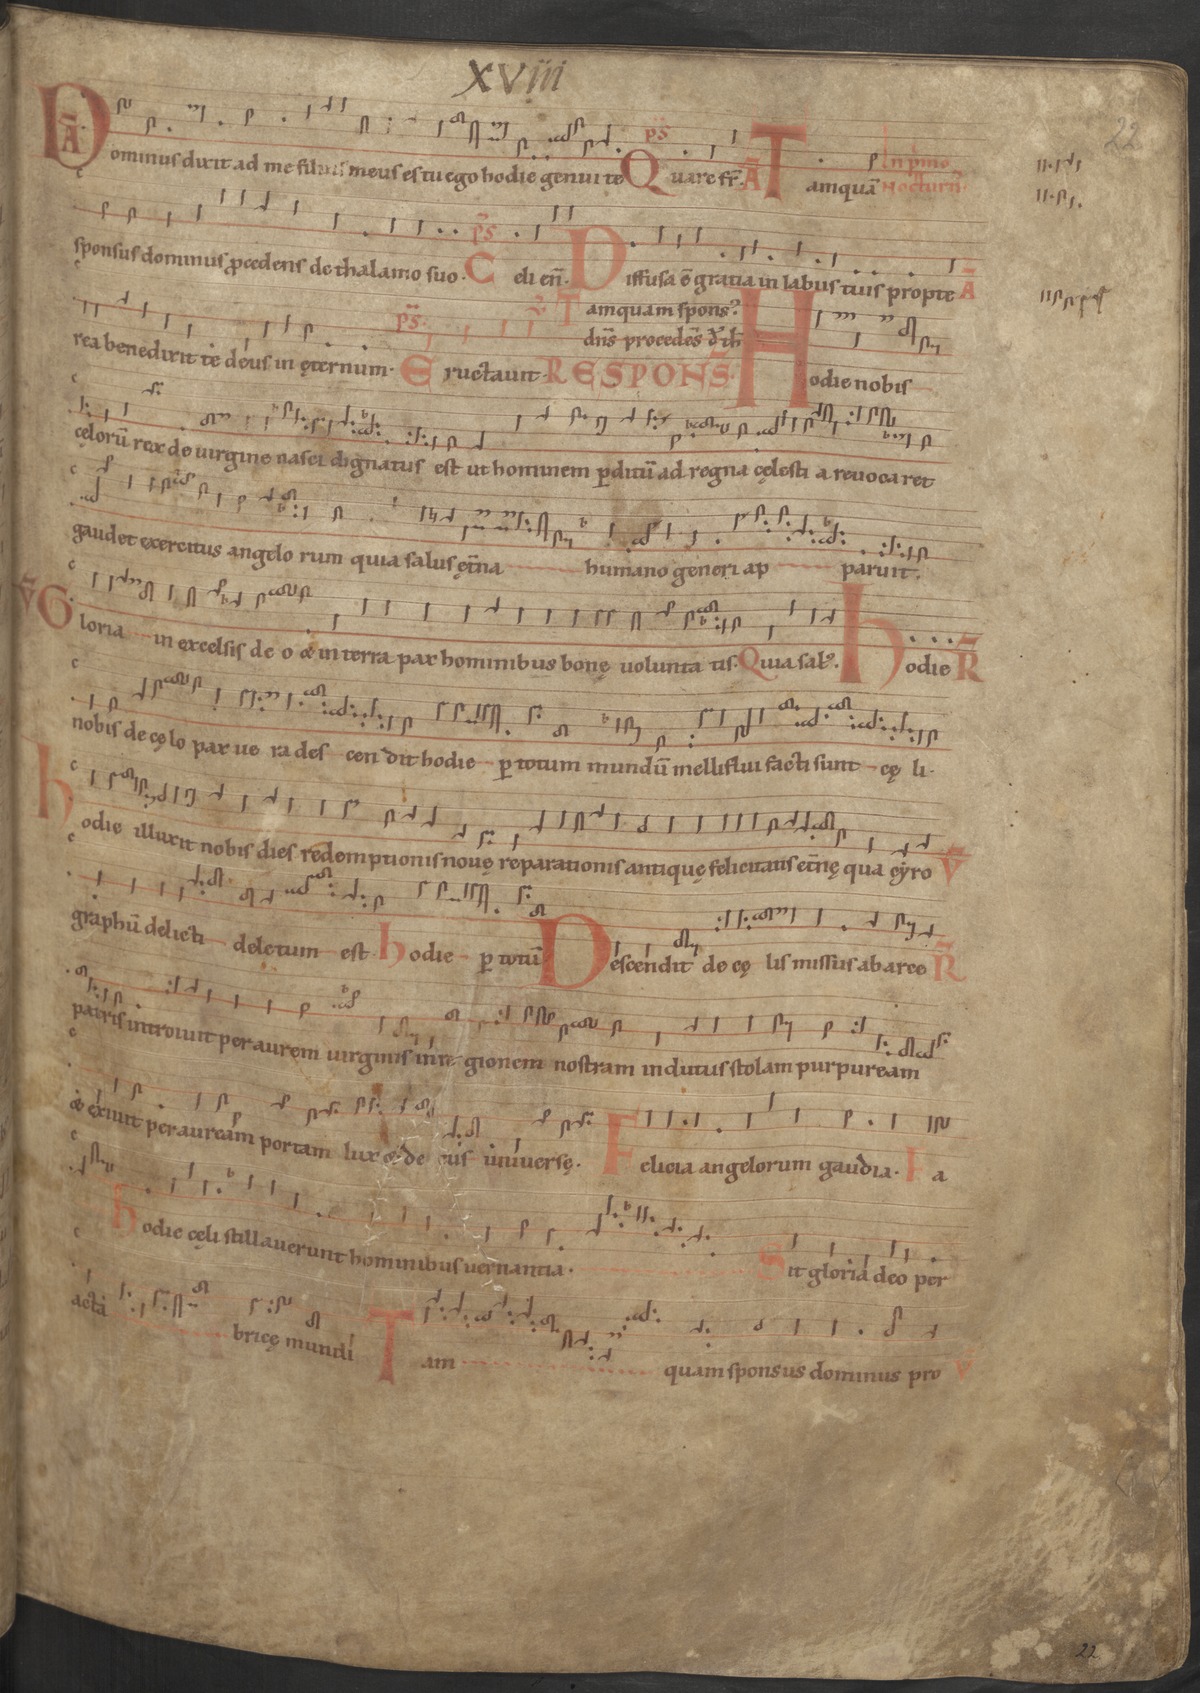 XVIII
22
Ā Dominus dixit ad me filius meus es tu ego hodie genui te p̄s Quare fr̄. Ā Tamquā In pimo
Nocturn̄
sponsus dominus p̄cedens de thalamo suo. p̄s Celi en̄. Diffusa ē gratia in labiis tuis propte Ā
Tamquam spons?
dn̄s procedēs d th
rea benedixit te deus in ęternum. p̄s. Eructauit. RESPONS. Hodie nobis
cęlorū rex de uirgine nasci dignatus est ut hominem p̄ditū ad regna cęlesti a reuocaret
gaudet exercitus angelo rum quia salus ęt̄na humano generi ap paruit.
V̄ Gloria in excelsis de o & in terra pax hominibus bonę uolunta tis. Quia sal?. hodie R̄
nobis de cęlo pax ue ra des cen dit hodie p̄ totum mundū melliflui facti sunt cę li.
hodie illuxit nobis dies redemptionis nouę reparationis antiquę felicitatis et̄nę qua cyro V̄
graphū delicti deletum est hodie p̄ totū Descendit de cę lis missus ab arce R̄
patris introiuit per aurem uirginis in re gionem nostram indutus stolam purpuream
& exiuit per auream portam lux & de cus uniuersę. Felicia angelorum gaudia. Ia
hodie cęli stillauerunt hominibus uernantia. Sit gloria deo per
acta bricę mundi Tam quam sponsus dominus pro V̄
22